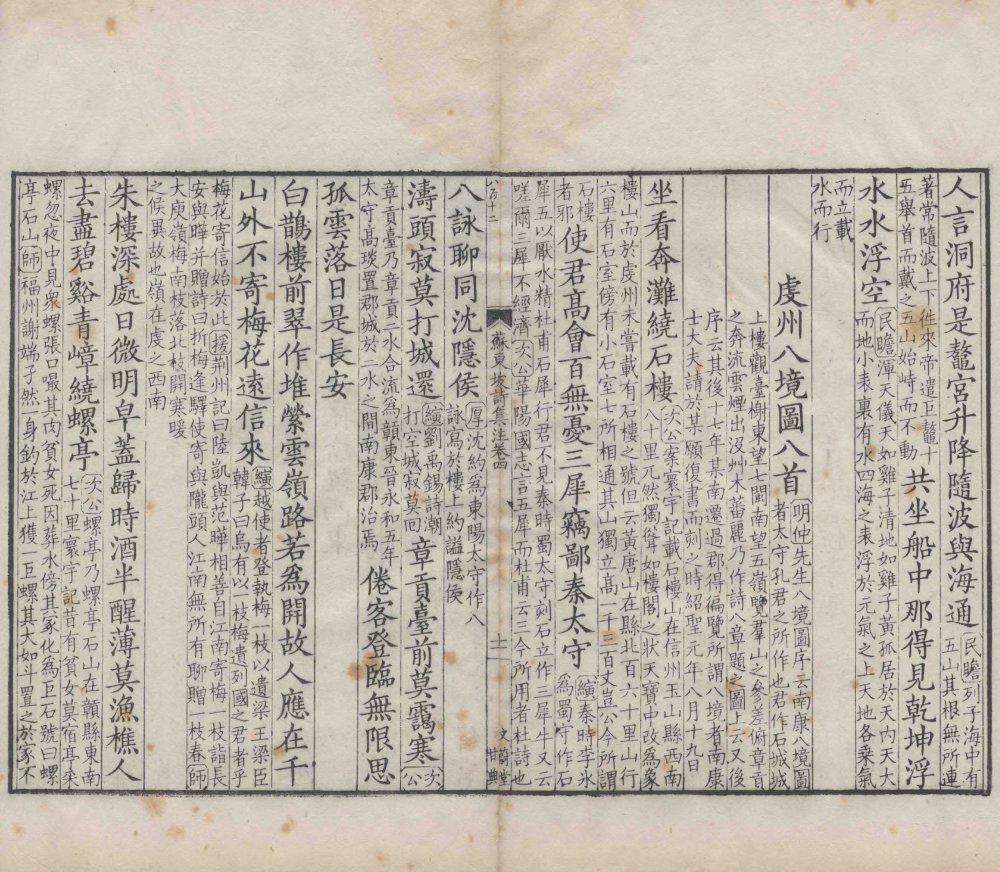 人言洞府是鼇宮升降隨波與海通民瞻列子海中有五山其根無所連
著常隨波上下徃來帝遣巨鼇十五舉首而戴之五山始峙而不動共坐船中那得見乾坤浮
水水浮空民瞻渾天儀天如雞子清地如雞子黄孤居於天内天大而地小表裏有水四海之表浮於元氣之上天地各乗氣
而立載水而行
虔州八境圖八首明仲先生八境圖序云南康八境圖者太守孔君之所作也君作石城城
上樓觀臺榭東望七閩南望五嶺覽羣山之參差俯章貢之奔流雲煙出沒艸木蕃麗乃作詩八章題之圖上云又後
序云其後十七年某南遷過郡得徧覽所謂八境者南康士大夫請於某願復書而刻之時紹聖元年八月十九日
坐看奔灘繞石樓次公案寰宇記載石樓山在信州玉山縣西南八十里亢然獨聳如樓閣之狀天寶中改為象
樓山而於虔州未嘗載有石樓之號但云黄唐山在縣北百六十里山行六里有石室傍有小石室七所相通其山獨立高一千三百丈豈公今所謂
石樓者邪使君高會百無憂三犀竊鄙秦太守縯秦時李氷為蜀守作石
犀五以厭水精杜甫石犀行君不見秦時蜀太守刻石立作三犀牛又云嗟爾三犀不經濟次公華陽國志言五犀而杜甫云三今所用者杜詩也
蘇東坡詩集注卷四
十二
文蔚堂
八詠聊同沈隱侯厚沈約為東陽太守作八詠寫於樓上約謚隱侯
濤頭寂莫打城還縯劉禹錫詩潮打空城寂莫回章貢臺前莫靄寒次公
章貢臺乃章貢二水合流為贑東晉永和五年太守高琰置郡城於二水之間南康郡治焉倦客登臨無限思
孤雲落日是長安
白鵲樓前翠作堆縈雲嶺路若為開故人應在千
山外不寄梅花逺信來縯越使者登執梅一枝以遺梁王梁臣韓子曰烏有以一枝梅遺列國之君者乎
梅花寄信始於此援荆州記曰陸凱與范曄相善自江南寄梅一枝詣長安與曄并贈詩曰折梅逢驛使寄與隴頭人江南無所有聊贈一枝春師
大庾嶺梅南枝落北枝開寒暖之候異故也嶺在虔之西南
朱樓深處日微明皁蓋歸時酒半醒薄莫漁樵人
去盡碧谿青嶂繞螺亭次公螺亭乃螺亭石山在贑縣東南七十里寰宇記昔有貧女莫宿亭來
螺忽夜中見衆螺張口噉其肉貧女死因葬水傍其冡化為巨石號曰螺亭石山師福州謝端孑然一身釣於江上獲一巨螺其大如斗置之於家不